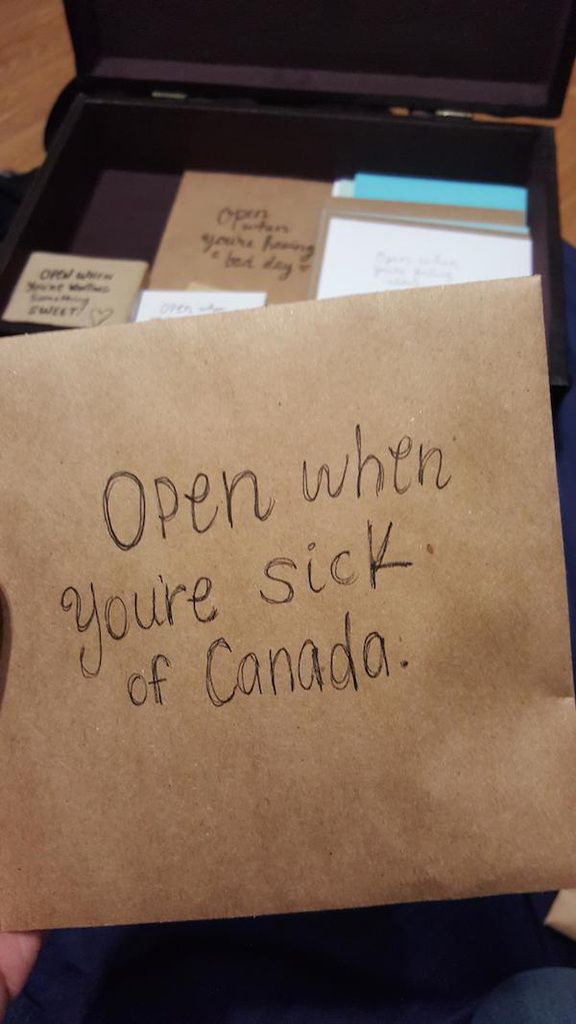 Open
when
you're having
a bad day
OPEN WHEN
You're wanting
Something
SWEET!
Open when
Open when
you're
Open when
you're sick
of Canada.